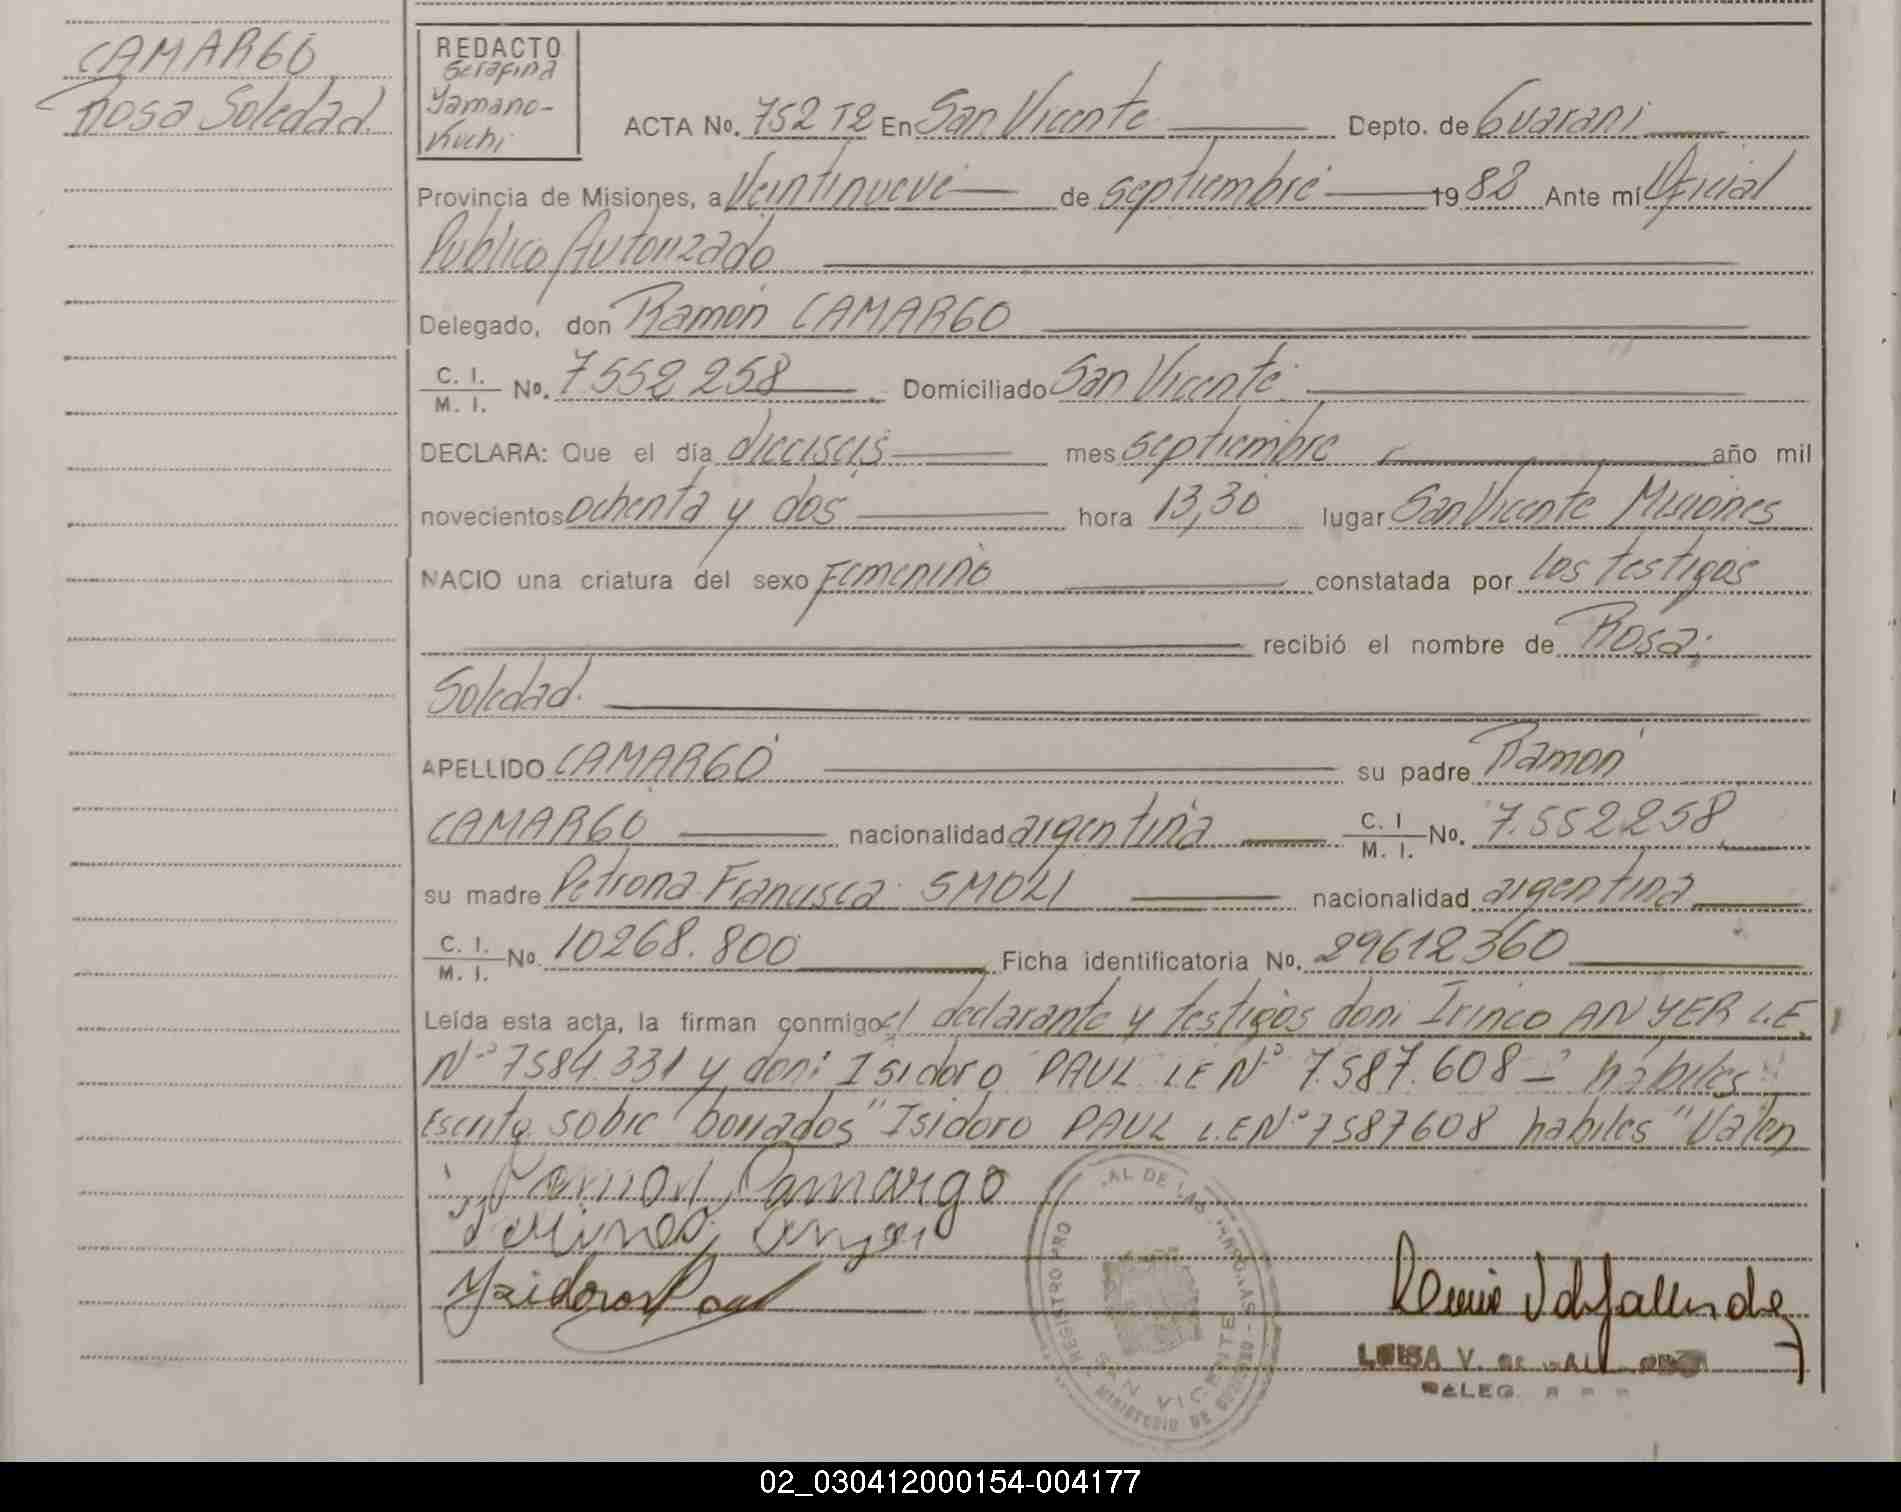 CAMARGO
Rosa Soledad
REDACTO
Serafina
Yamano-
Kuchi
ACTA No. 752 T2 En San Vicente Depto. de Guarani
Provincia de Misiones, a Veintinueve de septiembre 1982 Ante mí Oficial
Publico Autorizado
Delegado, don Ramón CAMARGO
C. I. / M. I. No. 7552258 Domiciliado San Vicente
DECLARA: Que el día dieciseis mes septiembre año mil
novecientos ochenta y dos hora 13,30 lugar San Vicente Misiones
NACIO una criatura del sexo femenino constatada por los testigos
recibió el nombre de Rosa
Soledad.
APELLIDO CAMARGO su padre Ramón
CAMARGO nacionalidad argentina C. I / M. I. No. 7.552258
su madre Petrona Francisca SMOLI nacionalidad argentina
C. I. / M. I. No. 10268.800 Ficha identificatoria No. 29612360
Leída esta acta, la firman conmigo el declarante y testigos don: Irineo ANYER L.E.
Nº 7584.331 y don: Isidoro PAUL LE Nº 7.587.608 - habiles
Escrito sobre borrados "Isidoro PAUL L.E Nº 7587608 habiles" Valen
Ramon Camargo
Ysidoro Paul
REGISTRO PRO AL DE LAS PERSONAS
MINISTERIO DE GOBIERNO
SAN VICENTE
LUISA V. DE
DELEG.
02_030412000154-004177